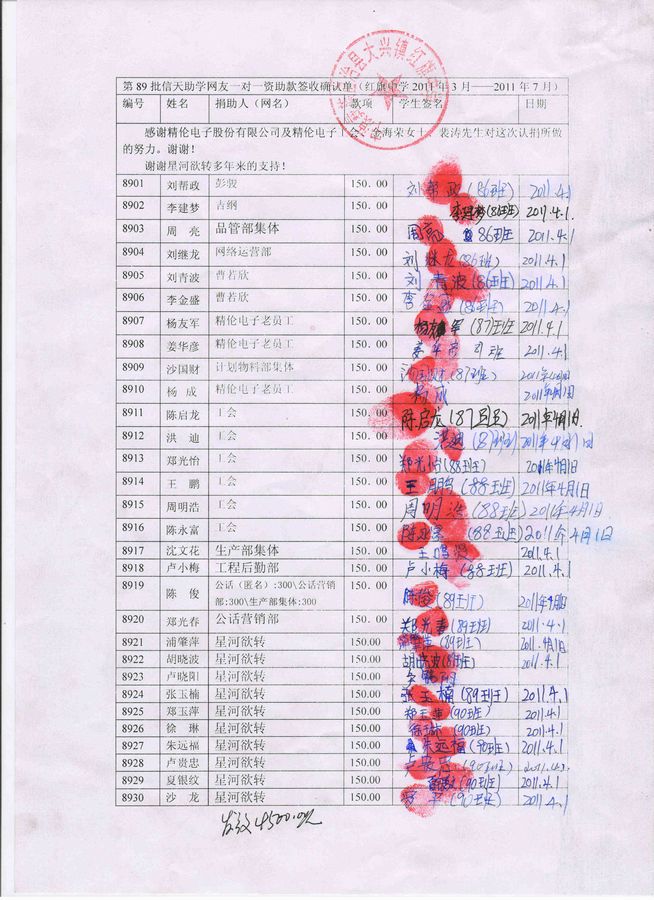 第89批信天助学网友一对一资助款签收确认单(红旗中学2011年3月——2011年7月)
编号 姓名 捐助人(网名) 款项 学生签名 日期
感谢精伦电子股份有限公司及精伦电子工会、海荣女士、裴涛先生对这次认捐所做
的努力。谢谢!
谢谢星河欲转多年来的支持!
8901 刘帮政 彭骏 150.00 刘帮政(86班) 2011.4.1
8902 李建梦 吉纲 150.00 李建梦(86班) 2011.4.1.
8903 周 亮 品管部集体 150.00 周亮 86班 2011.4.1
8904 刘继龙 网络运营部 150.00 刘继龙(86班) 2011.4.1
8905 刘青波 曹若欣 150.00 刘青波(86班) 2011.4.1
8906 李金盛 曹若欣 150.00 2011.4.1
8907 杨友军 精伦电子老员工 150.00 杨友军(87班) 2011.4.1
8908 姜华彦 精伦电子老员工 150.00 班 2011.4.1
8909 沙国财 计划物料部集体 150.00 (87班)
8910 杨 成 精伦电子老员工 150.00 杨成 2011年4月1日
8911 陈启龙 工会 150.00 陈启龙(87班) 2011年4月1日.
8912 洪 迪 工会 150.00 洪迪(87班) 2011年4月1日
8913 郑光怡 工会 150.00 郑光怡(88班) 2011年4月1日
8914 王 鹏 工会 150.00 王鹏(88班) 2011年4月1日
8915 周明浩 工会 150.00 周明浩(88班) 2011年4月1日
8916 陈永富 工会 150.00 陈永富(88班) 2011年4月1日
8917 沈文花 生产部集体 150.00 2011.4.1
8918 卢小梅 工程后勤部 150.00 卢小梅(88班) 2011.4.1
8919 陈 俊 公话(匿名):300\公话营销
部:300\生产部集体:300 150.00 陈俊(89班) 2011年4月1日
8920 郑光春 公话营销部 150.00 郑光春(89班) 2011.4.1
8921 浦肇萍 星河欲转 150.00 (89班) 2011.4月1日
8922 胡晓波 星河欲转 150.00 胡晓波(89班) 2011.4.1
8923 卢晓阳 星河欲转 150.00
8924 张玉楠 星河欲转 150.00 张玉楠(89班) 2011.4.1
8925 郑玉萍 星河欲转 150.00 郑玉萍(90班) 2011.4.1
8926 徐 琳 星河欲转 150.00 徐琳(90班) 2011.4.1
8927 朱远福 星河欲转 150.00 朱远福(90班) 2011.4.1
8928 卢贵忠 星河欲转 150.00 (90班) 2011.4.1.
8929 夏银纹 星河欲转 150.00 (90班) 2011.4.1
8930 沙 龙 星河欲转 150.00 (90班) 2011.4.1
发放4500.00元